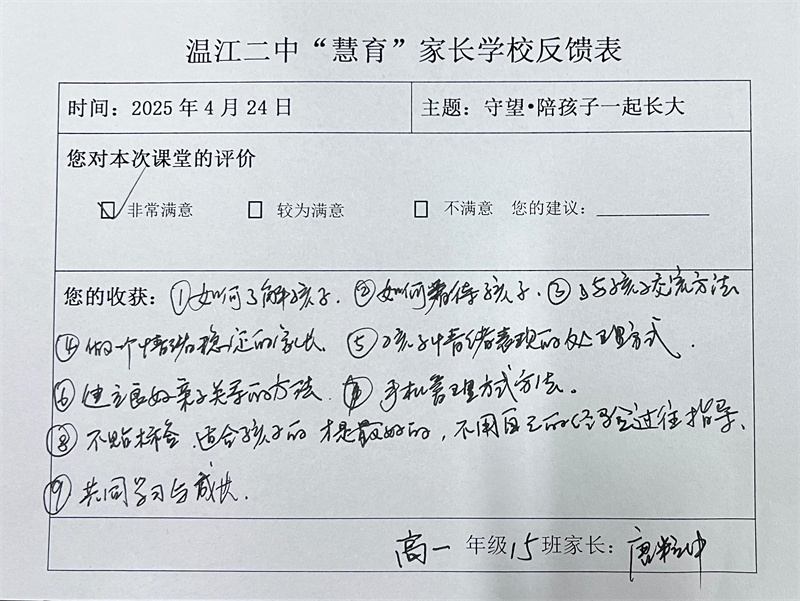 温江二中“慧育”家长学校反馈表
时间：2025年4月24日 主题：守望•陪孩子一起长大
您对本次课堂的评价
☑ 非常满意 □ 较为满意 □ 不满意 您的建议：
您的收获：①如何了解孩子．②如何看待孩子、③与孩子交流方法
④做一个情绪稳定的家长．⑤孩子情绪表现的处理方式．
⑥建立良好亲子关系的方法．⑦手机管理方式方法．
⑧不贴标签．适合孩子的才是最好的，不用自己的经验过往指导、
⑨共同学习与成长．
高一年级15班家长：唐